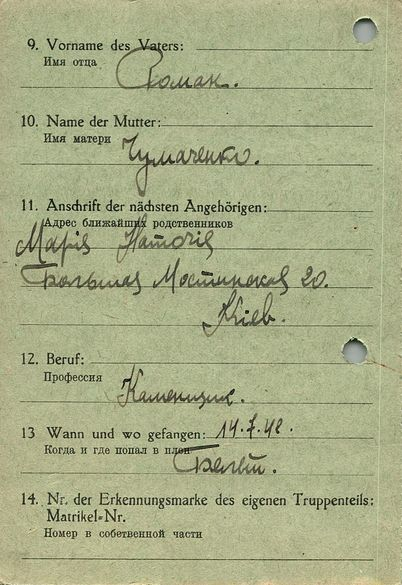 9. Vorname des Vaters:
Имя отца
Роман.
10. Name der Mutter:
Имя матери
Чумаченко.
11. Anschrift der nächsten Angehörigen:
Адрес ближайших родственников
Марія
Большая 20.
Кіев.
12. Beruf:
Профессия
Каменщик.
13 Wann und wo gefangen: 14.7.42.
Когда и где попал в плен
14. Nr. der Erkennungsmarke des eigenen Truppenteils:
Matrikel-Nr.
Номер в собетвенной части